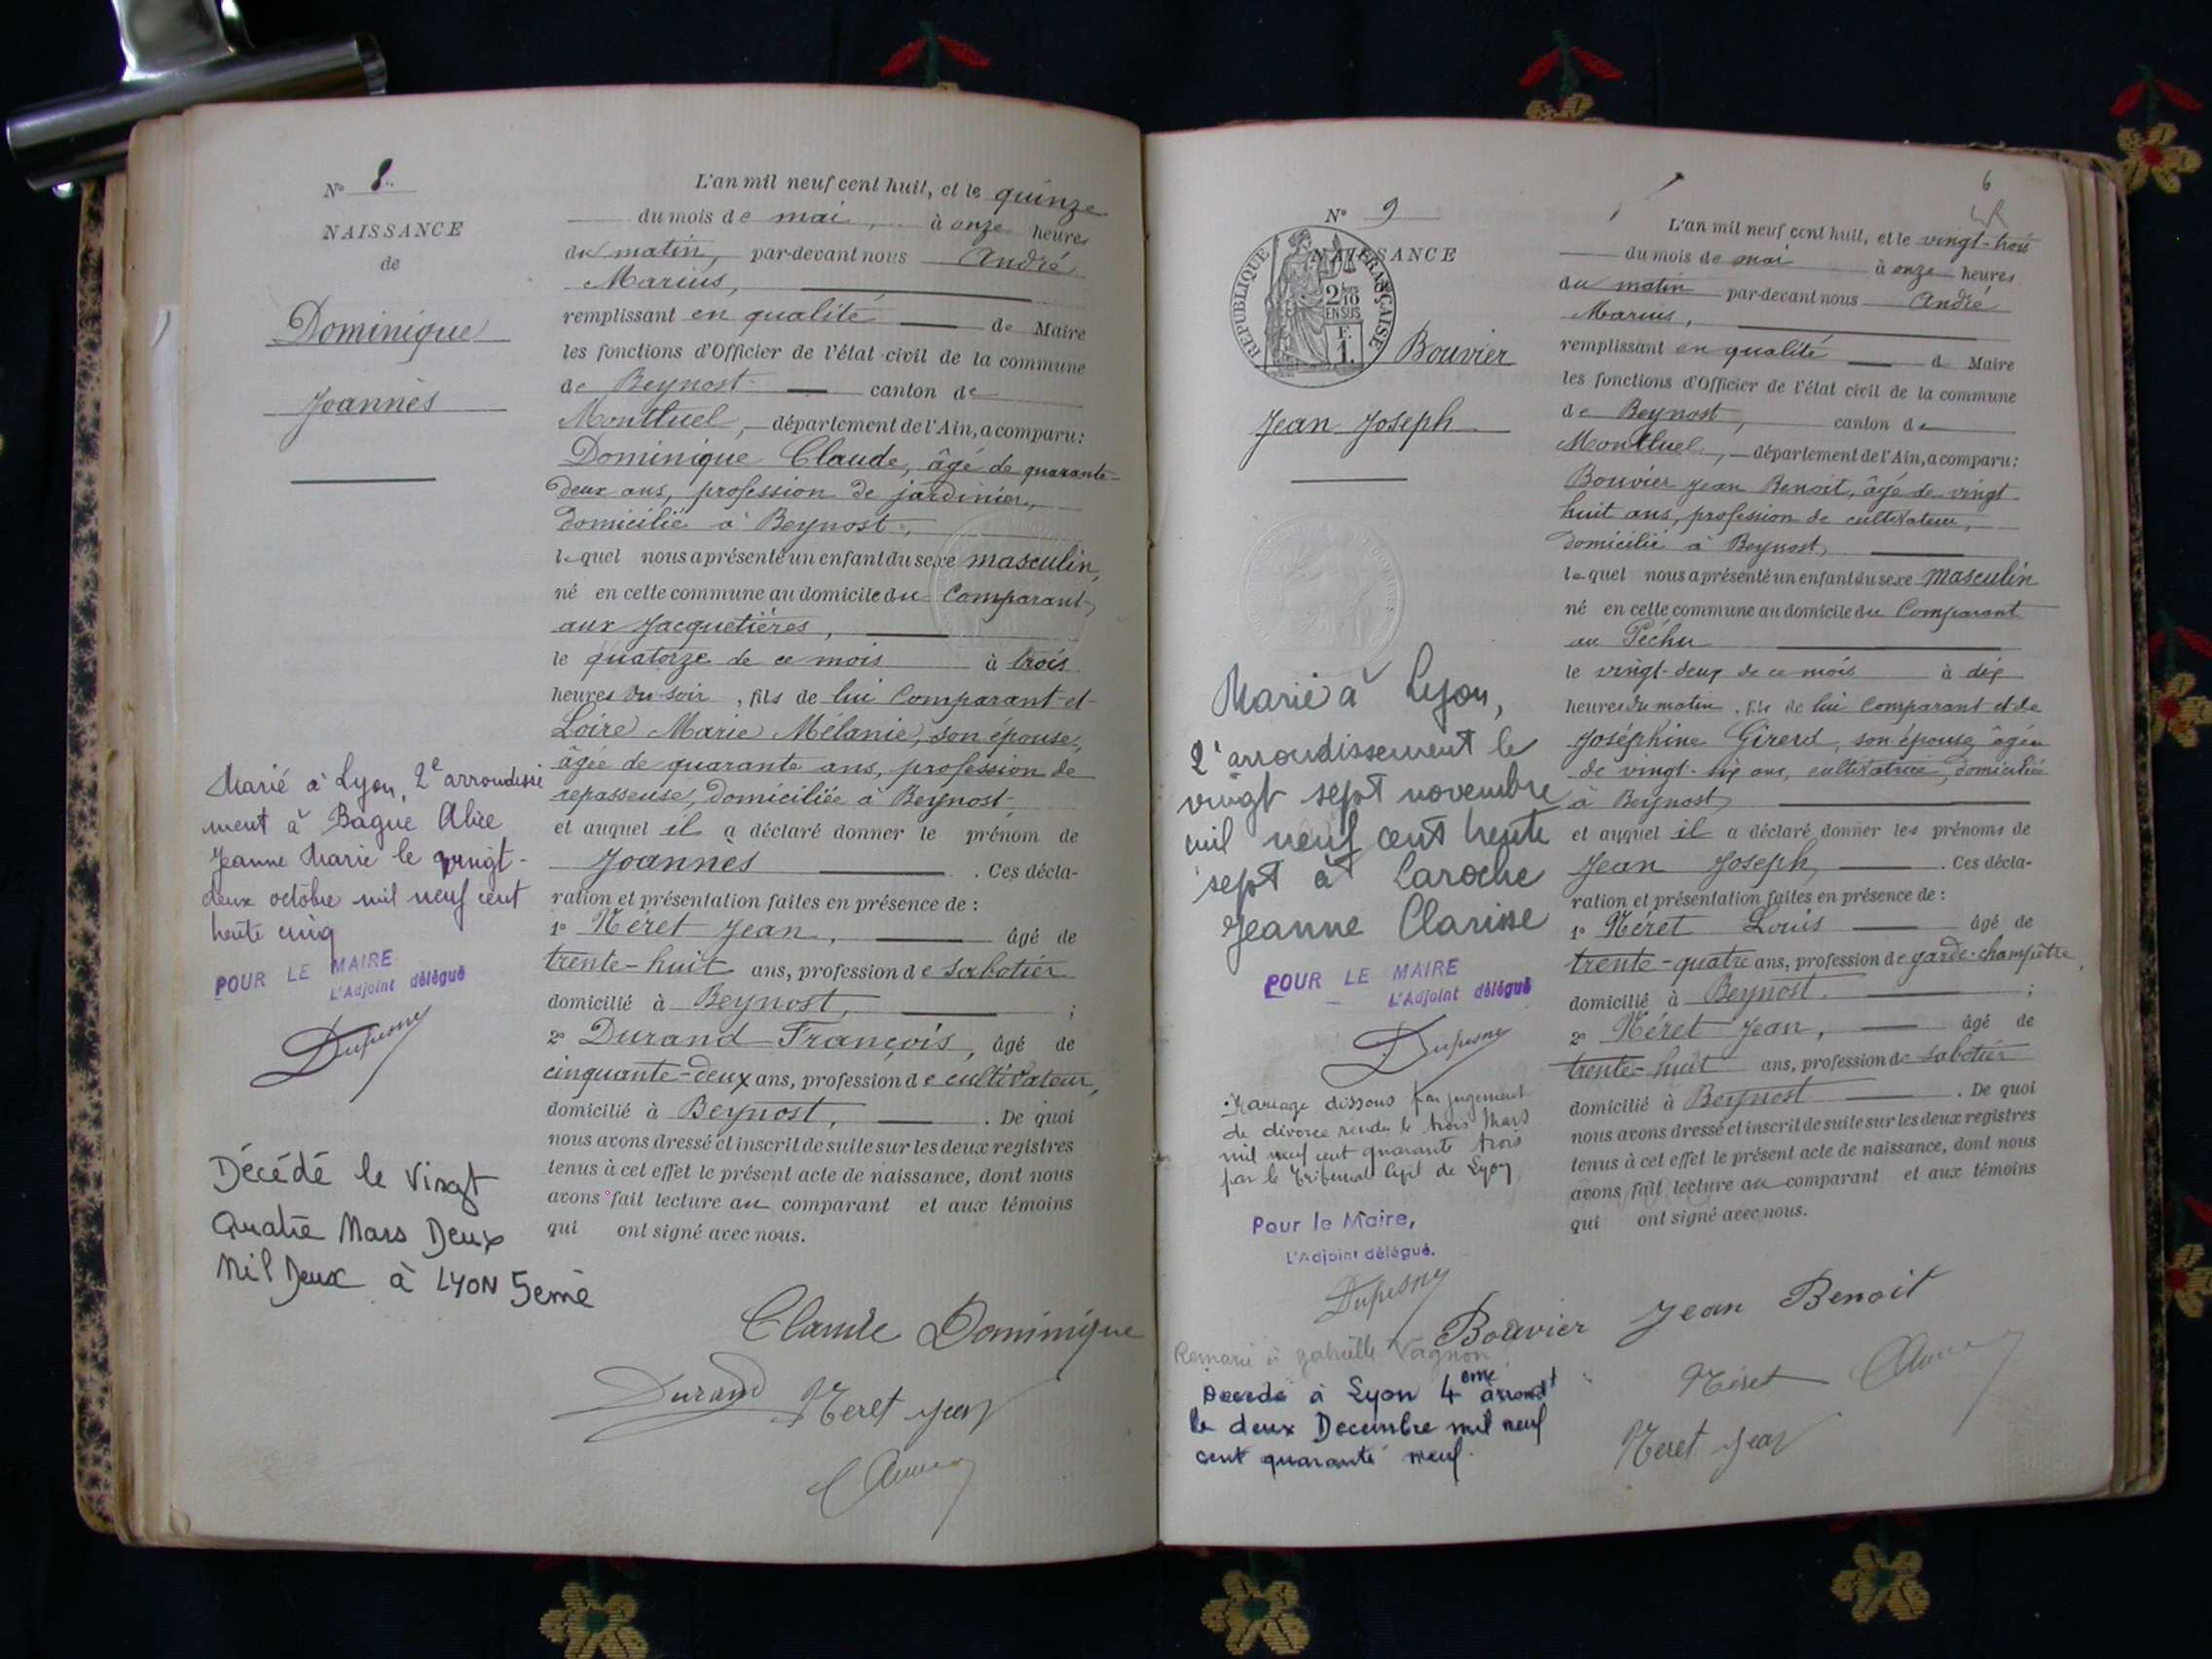 N° 8
NAISSANCE
de
Dominique
Joannès
Marié à Lyon, 2e arrondisse
ment à Bague Alice
Jeanne Marie le vingt-
deux octobre mil neuf cent
trente cinq
POUR LE MAIRE
L'Adjoint délégué
Décédé le Vingt
Quatre Mars Deux
Mil Deux à LYON 5eme
L'an mil neuf cent huit, et le quinze
du mois de mai, à onze heures
du matin, par-devant nous André
Marius,
remplissant en qualité de Maire
les fonctions d'Officier de l'état civil de la commune
de Beynost canton de
Montluel, département de l'Ain, a comparu :
Dominique Claude, âgé de quarante-
deux ans, profession de jardinier,
domicilié à Beynost,
lequel nous a présenté un enfant du sexe masculin,
né en cette commune au domicile du Comparant,
aux Jacquetières,
le quatorze de ce mois à trois
heures du soir, fils de lui Comparant et
Loire Marie Mélanie, son épouse,
âgée de quarante ans, profession de
repasseuse, domiciliée à Beynost,
et auquel il a déclaré donner le prénom de
Joannès. Ces décla-
ration et présentation faites en présence de :
1° Néret Jean, âgé de
trente-huit ans, profession de sabotier
domicilié à Beynost, ;
2° Durand François, âgé de
cinquante-deux ans, profession de cultivateur,
domicilié à Beynost, . De quoi
nous avons dressé et inscrit de suite sur les deux registres
tenus à cet effet le présent acte de naissance, dont nous
avons fait lecture au comparant et aux témoins
qui ont signé avec nous.
Claude Dominique
Durand Neret Jean
6
N° 9
NAISSANCE
REPUBLIQUE FRANÇAISE
2/10
EN SUS
F.
1.
Bouvier
Jean Joseph
Marié à Lyon,
2e arrondissement le
vingt sept novembre
mil neuf cent trente
sept à Laroche
Jeanne Clarisse
POUR LE MAIRE
L'Adjoint délégué
Mariage dissous par jugement
de divorce rendu le trois Mars
mil neuf cent quarante trois
par le Tribunal Civil de Lyon
Pour le Maire,
L'Adjoint délégué.
Remarié à Gabrielle Vagnon
Décédé à Lyon 4eme arrondt
le deux Decembre mil neuf
cent quarante neuf.
L'an mil neuf cent huit, et le vingt-trois
du mois de mai à onze heures
du matin par-devant nous André
Marius,
remplissant en qualité de Maire
les fonctions d'Officier de l'état civil de la commune
de Beynost, canton de
Montluel, département de l'Ain, a comparu :
Bouvier Jean Benoit, âgé de vingt
huit ans, profession de cultivateur,
domicilié à Beynost,
lequel nous a présenté un enfant du sexe masculin
né en cette commune au domicile du Comparant
au Péchu
le vingt-deux de ce mois à dix
heures du matin, fils de lui Comparant et de
Joséphine Girerd, son épouse, âgée
de vingt-six ans, cultivatrice, domiciliée
à Beynost,
et auquel il a déclaré donner les prénoms de
Jean Joseph. Ces décla-
ration et présentation faites en présence de :
1° Néret Louis âgé de
trente-quatre ans, profession de garde-champêtre,
domicilié à Beynost. ;
2° Néret Jean, âgé de
trente-huit ans, profession de sabotier
domicilié à Beynost . De quoi
nous avons dressé et inscrit de suite sur les deux registres
tenus à cet effet le présent acte de naissance, dont nous
avons fait lecture au comparant et aux témoins
qui ont signé avec nous.
Bouvier Jean Benoit
Néret
Neret Jean